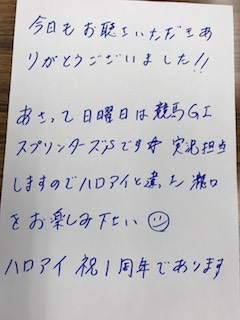 今日もお聴きいただきあ
りがとうございました!!
あさって日曜日は競馬GI
スプリンターズSです 実況担当
しますのでハロアイと違った 口
をお楽しみ下さい
ハロアイ 祝1周年であります